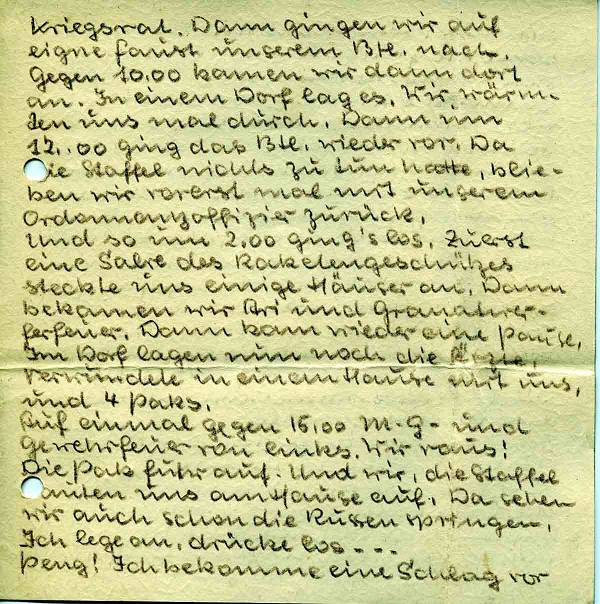 Kriegsrat. Dann gingen wir auf
eigne Faust unserem Btl. nach.
Gegen 10.00 kamen wir dann dort
an. In einem Dorf lag es. Wir wärm-
ten uns mal durch. Dann um
12.00 ging das Btl. wieder vor. Da
ie Staffel nichts zu tun hatte, blie-
ben wir vorerst mal mit unserem
Ordonnantzoffizier zurück.
Und so um 2.00 ging's los. Zuerst
eine Salve des Raketengeschützes
steckte uns einige Häuser an. Dann
bekamen wir Ari und Granatwer-
ferfeuer. Dann kam wieder eine Pause.
Im Dorf lagen nun noch die Ärzte,
Verwundete in einem Hause mit uns,
und 4 Paks.
Auf einmal gegen 15.00 M.G- und
Gewehrfeuer von links. Wir raus!
Die Pak fuhr auf. Und wir, die Staffel
auten uns am Hause auf. Da sehen
wir auch schon die Russen springen.
Ich lege an, drücke los - - -
Peng! Ich bekomme eine Schlag vor